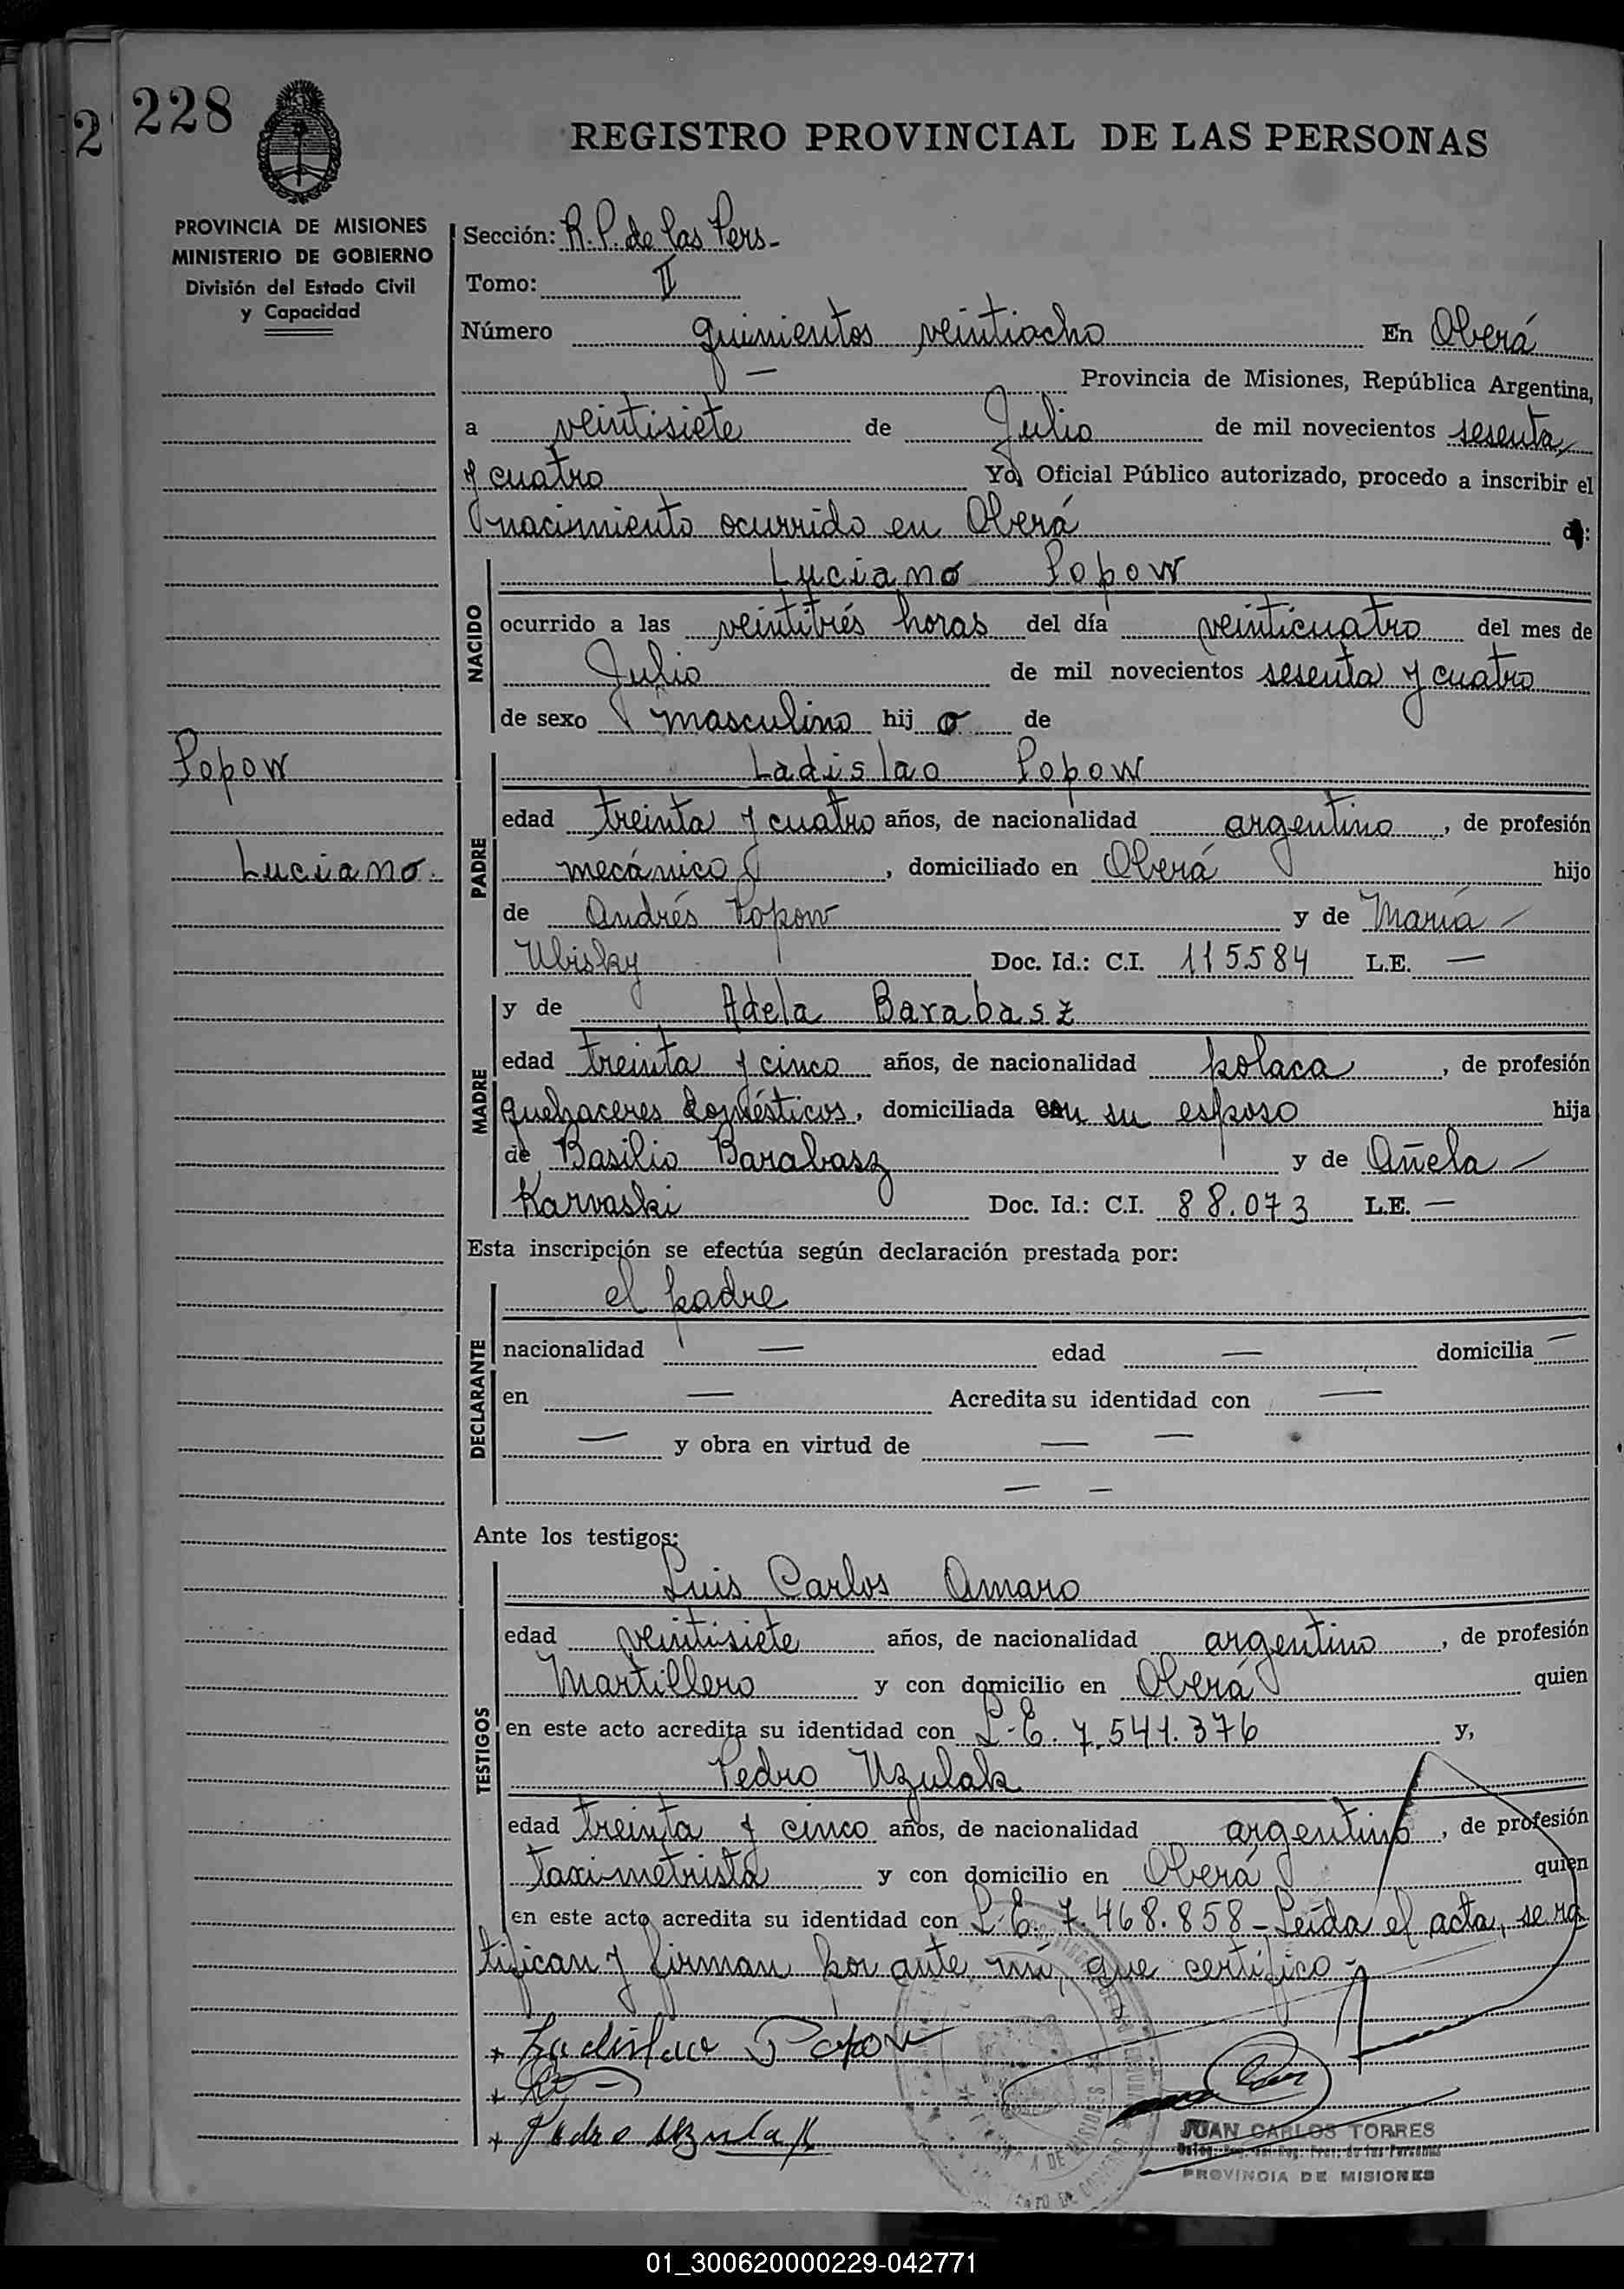 2 228
REGISTRO PROVINCIAL DE LAS PERSONAS
PROVINCIA DE MISIONES
MINISTERIO DE GOBIERNO
División del Estado Civil
y Capacidad
Popow
Luciano.
Sección: R. P. de las Pers-
Tomo: II
Número quinientos veintiocho En Oberá
— Provincia de Misiones, República Argentina,
a veintisiete de Julio de mil novecientos sesenta
y cuatro Yo, Oficial Público autorizado, procedo a inscribir el
nacimiento ocurrido en Oberá de:
NACIDO
Luciano Popow
ocurrido a las veintitrés horas del día veinticuatro del mes de
Julio de mil novecientos sesenta y cuatro
de sexo masculino hij o de
PADRE
Ladislao Popow
edad treinta y cuatro años, de nacionalidad argentino, de profesión
mecánico, domiciliado en Oberá hijo
de Andrés Popow y de María —
Ubisky Doc. Id.: C.I. 115584 L.E. —
MADRE
y de Adela Barabasz
edad treinta y cinco años, de nacionalidad polaca, de profesión
quehaceres domésticos, domiciliada con su esposo hija
de Basilio Barabasz y de Añela —
Karvaski Doc. Id.: C.I. 88.073 L.E. —
Esta inscripción se efectúa según declaración prestada por:
DECLARANTE
el padre
nacionalidad — edad — domicilia —
en — Acredita su identidad con —
— y obra en virtud de — —
— —
Ante los testigos:
TESTIGOS
Luis Carlos Amaro
edad veintisiete años, de nacionalidad argentino, de profesión
Martillero y con domicilio en Oberá quien
en este acto acredita su identidad con L.E. 7.541.376 y,
Pedro Uzulak
edad treinta y cinco años, de nacionalidad argentino, de profesión
taximetrista y con domicilio en Oberá quien
en este acto acredita su identidad con L.E. 7.468.858 - Leída el acta, se ra
tifican y firman por ante mí, que certifico -
+ Ladislao Popow
+
+ Pedro Uzulak
JUAN CARLOS TORRES
PROVINCIA DE MISIONES
01_300620000229-042771